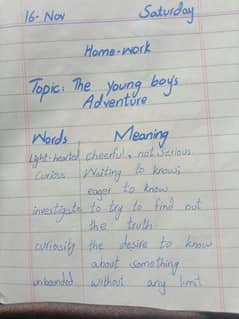 16- Nov Saturday
Home-work
Topic: The young boys
Adventure
Words Meaning
Light-hearted cheerful, not serious
Curious Waiting to know;
eager to know
investigate to try to find out
the truth
curiosity the desire to know
about something
unbounded without any limit